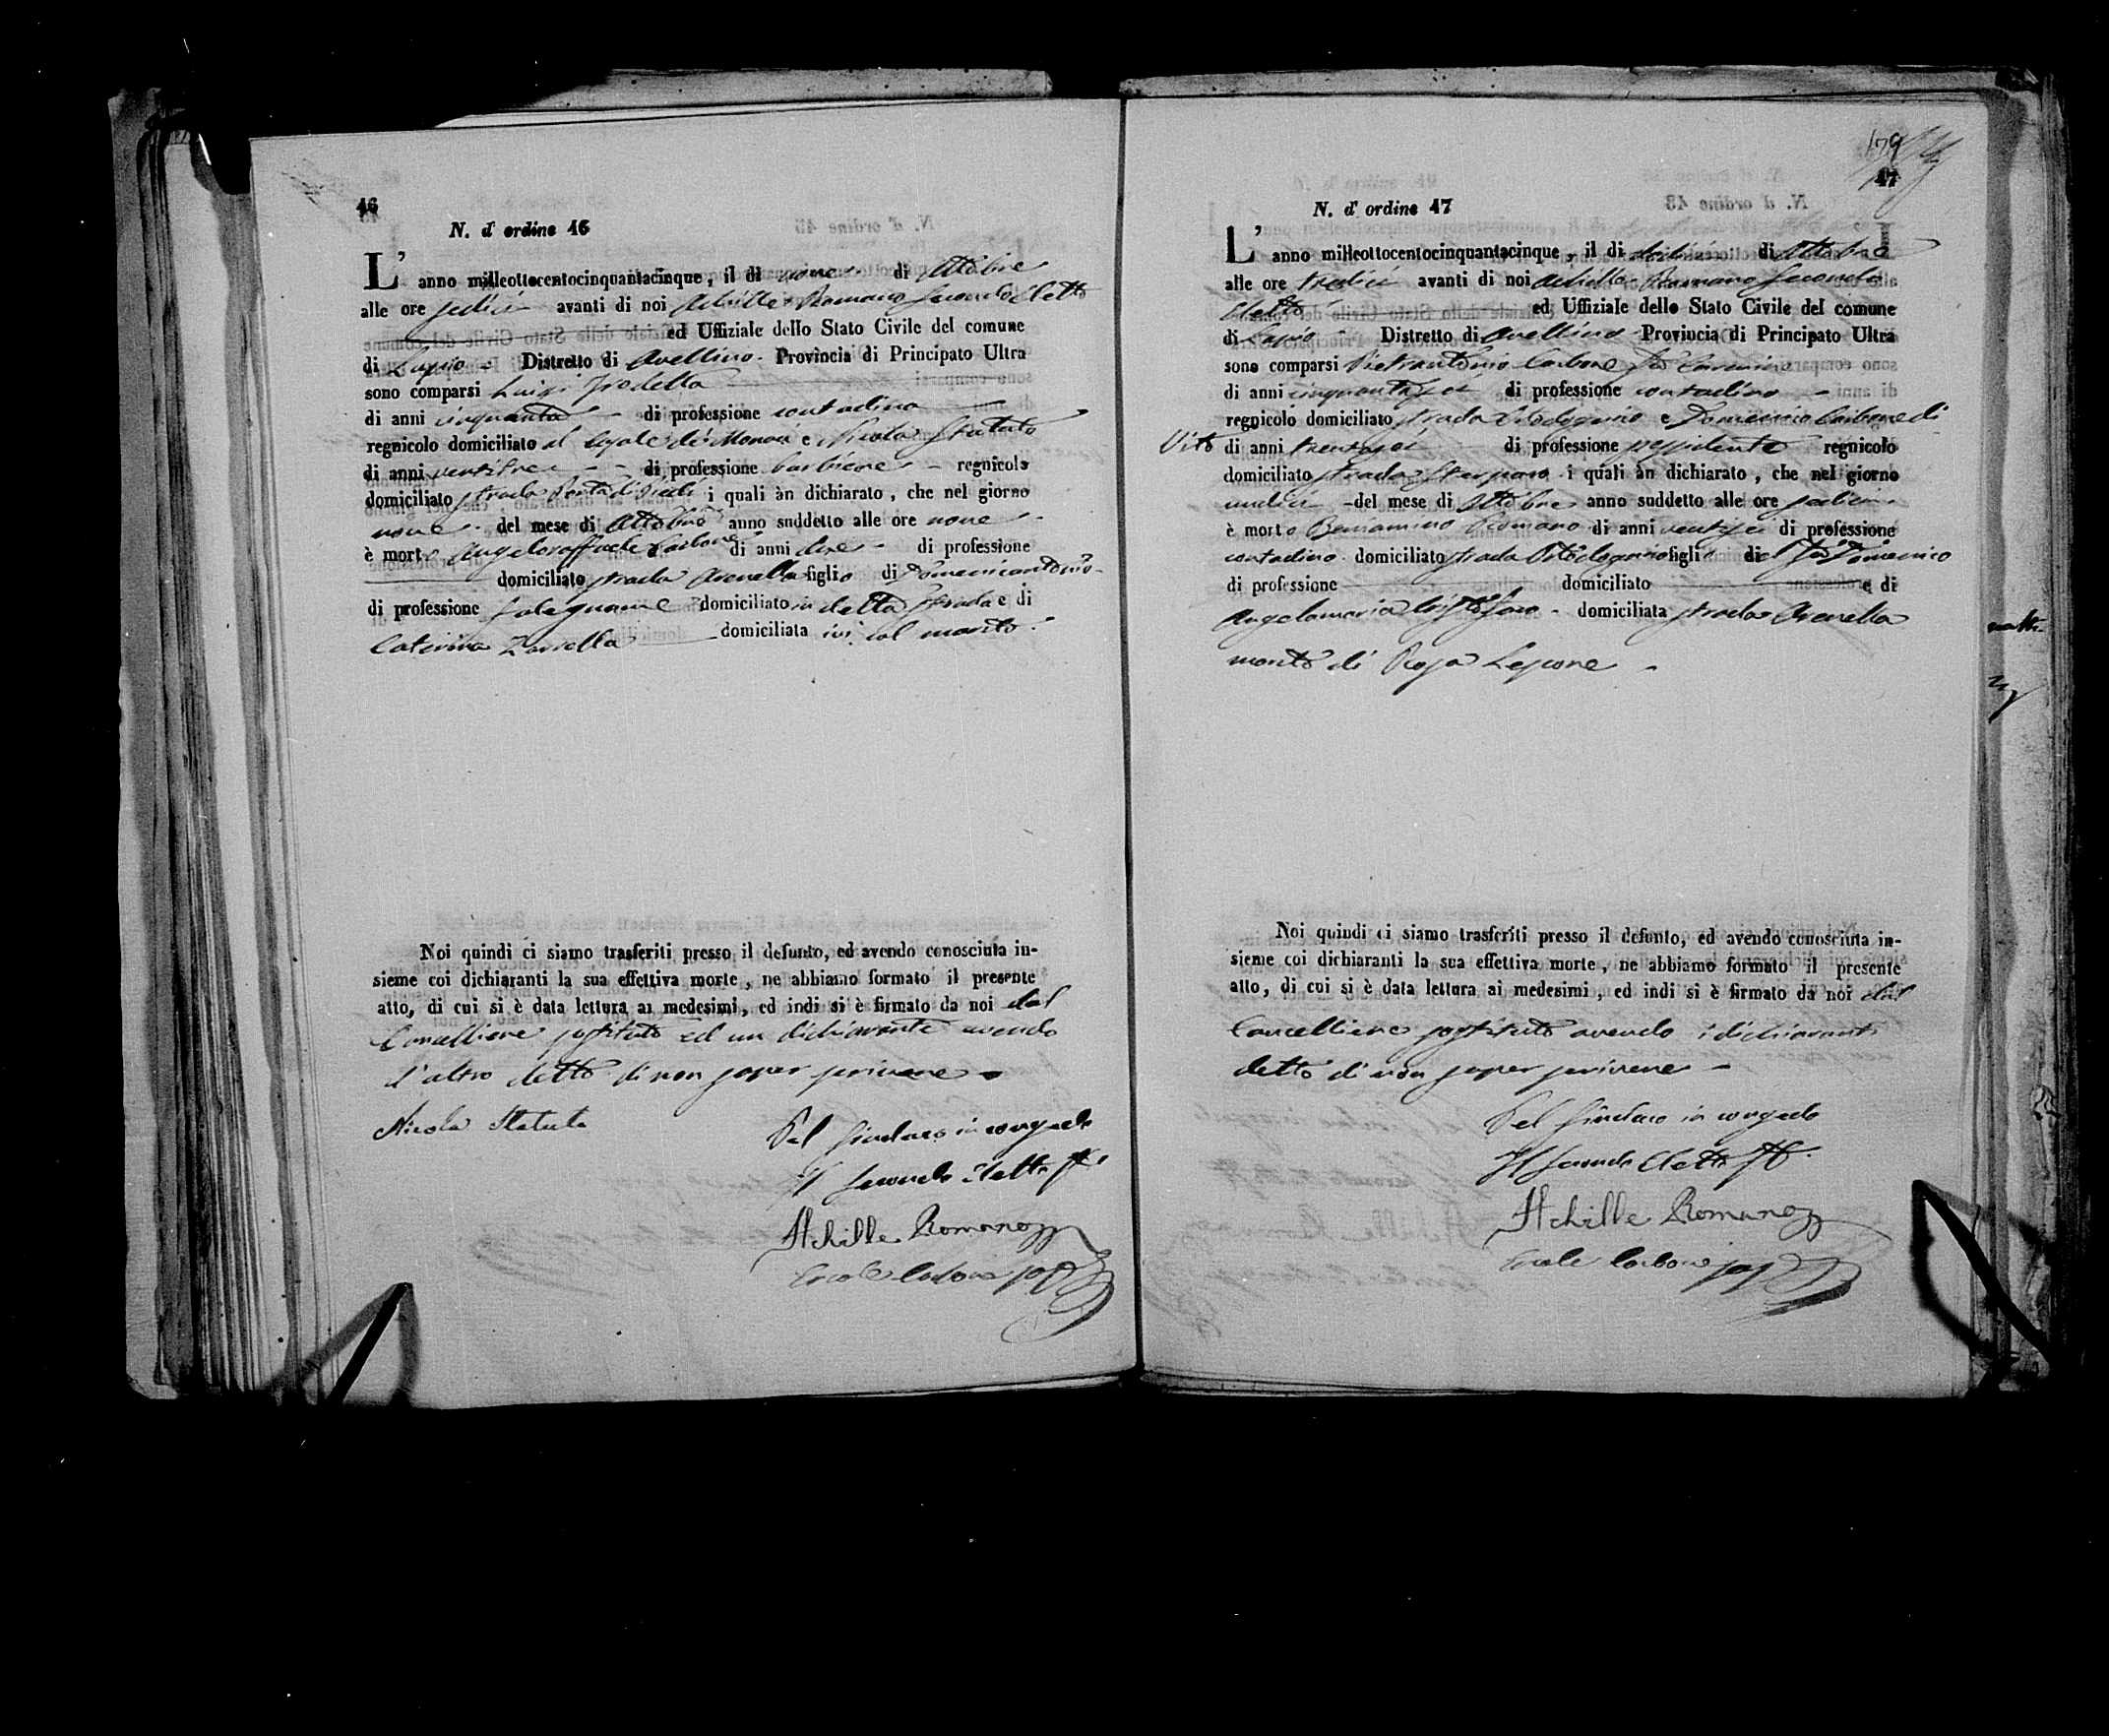 46
N. d' ordine 46
L' anno millleottocentocinquantacinque, il dì nove di Ottobre
alle ore sedici avanti di noi Achille Romano Secondo Eletto
ed Uffiziale dello Stato Civile del comune
di Lapio Distretto di Avellino Provincia di Principato Ultra
sono comparsi Luigi
di anni cinquanta di professione contadino
regnicolo domiciliato al de' Monaci e Nicola Statuto
di anni ventitre di professione barbiere regnicolo
domiciliato strada Porta di i quali àn dichiarato, che nel giorno
nove del mese di Ottobre anno suddetto alle ore nove
è morto Angeloraffaele Carbone di anni due di professione
domiciliato strada Arenella figlio di Domenicantonio
di professione Falegname domiciliato in detta strada e di
Caterina Zarrella domiciliata ivi col marito.
Noi quindi ci siamo trasferiti presso il defunto, ed avendo conosciuta in-
sieme coi dichiaranti la sua effettiva morte, ne abbiamo formato il presente
atto, di cui si è data lettura ai medesimi, ed indi si è firmato da noi dal
Cancelliere sostituto ed un dichiarante avendo
l'altro detto di non saper scrivere
Nicola Statuto
Pel Sindaco in congedo
Il Secondo Eletto
Achille Romano
Ercole Carbone sos
179
47
N. d' ordine 47
L' anno millleottocentocinquantacinque, il dì dodici di Ottobre
alle ore tredici avanti di noi Achille Romano Secondo
Eletto ed Uffiziale dello Stato Civile del comune
di Lapio Distretto di Avellino Provincia di Principato Ultra
sono comparsi Pietrantonio Carbone fu Carmine
di anni cinquantasei di professione contadino
regnicolo domiciliato strada e Domenico Carbone di
Vito di anni trentasei di professione possidente regnicolo
domiciliato strada i quali àn dichiarato, che nel giorno
undici del mese di Ottobre anno suddetto alle ore sedici
è morto Beniamino Romano di anni ventisei di professione
contadino domiciliato strada figlio del fu Domenico
di professione domiciliato e di
Angelamaria Cristofaro domiciliata strada Arenella
marito di Rosa Lepore
Noi quindi ci siamo trasferiti presso il defunto, ed avendo conosciuta in-
sieme coi dichiaranti la sua effettiva morte, ne abbiamo formato il presente
atto, di cui si è data lettura ai medesimi, ed indi si è firmato da noi dal
Cancelliere sostituto avendo i dichiaranti
detto di non saper scrivere
Pel Sindaco in congedo
Il Secondo Eletto
Achille Romano
Ercole Carbone sos